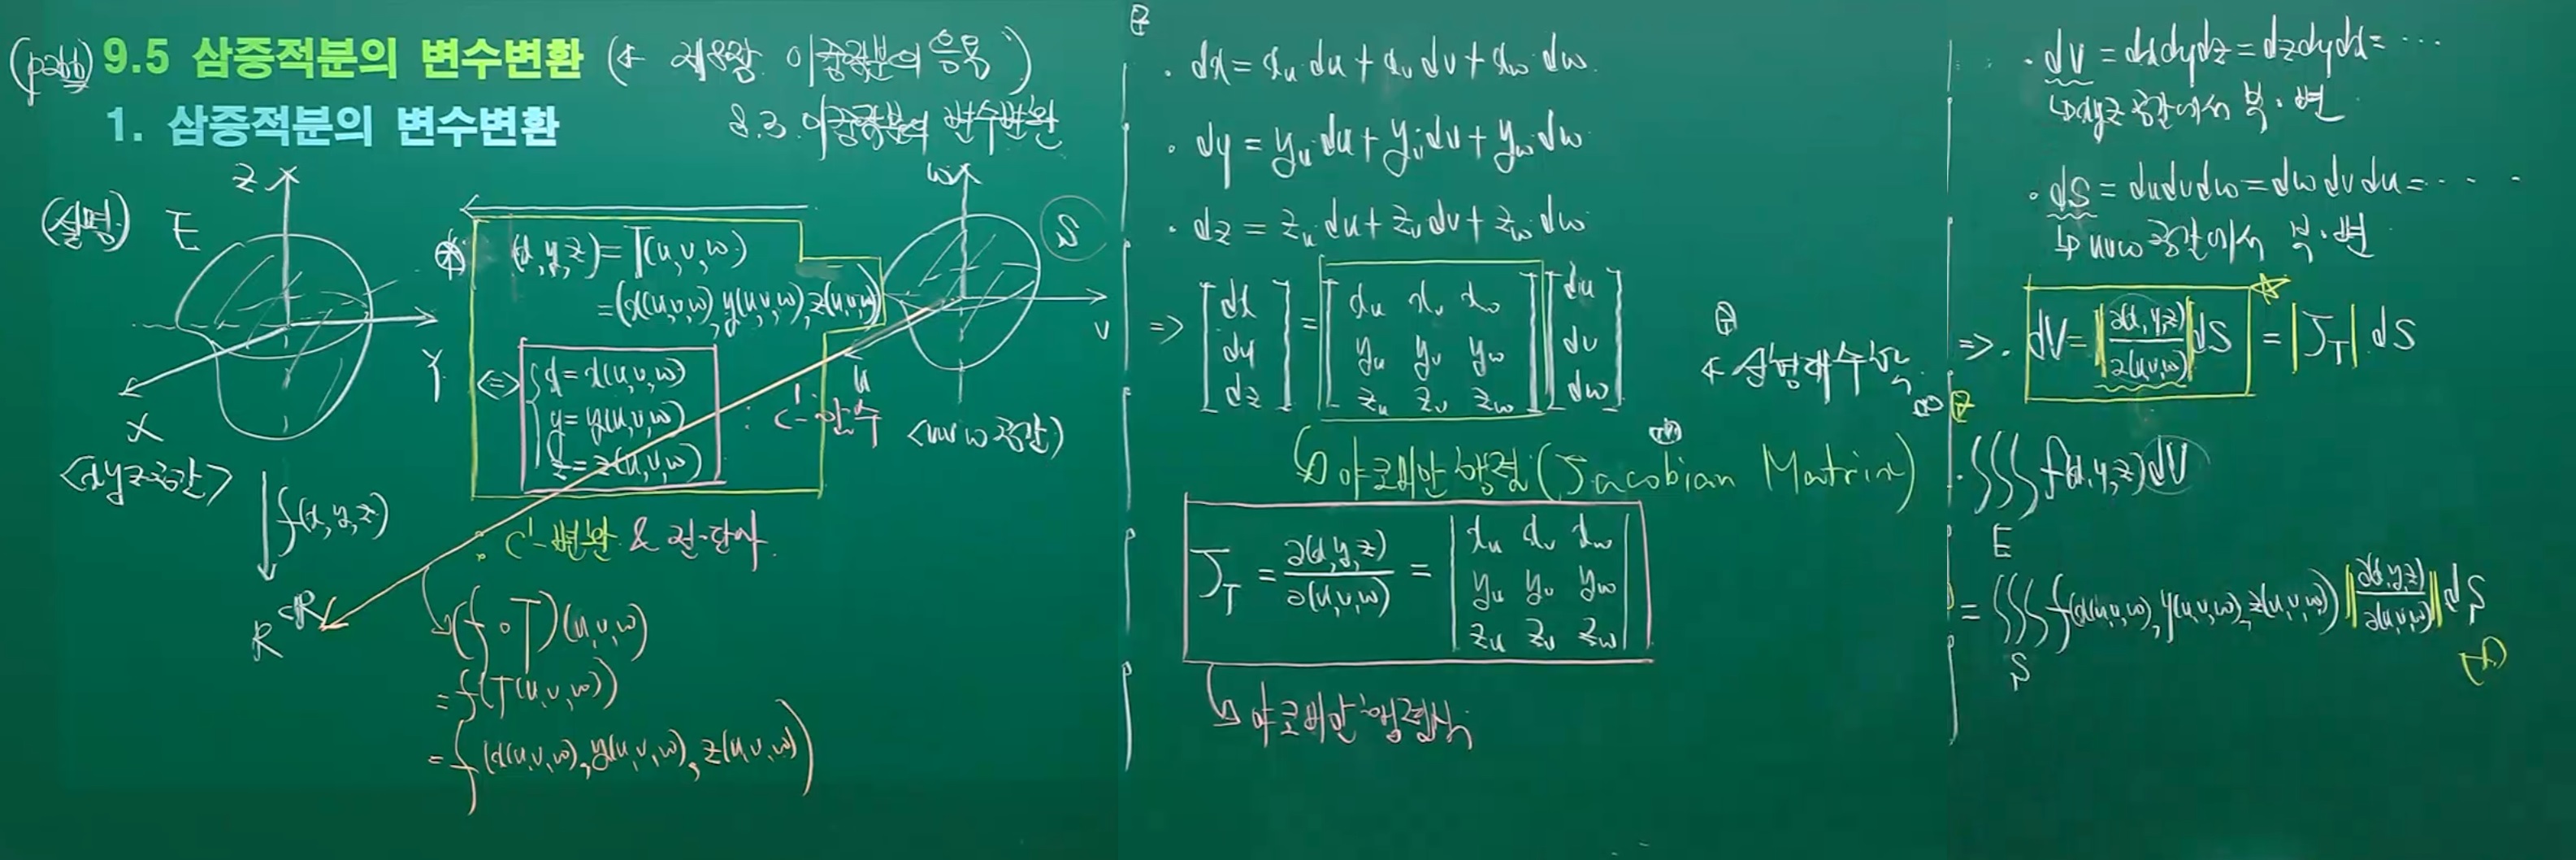 (p266) 9.5 삼중적분의 변수변환 (← 제8장. 이중적분의 응용)
1. 삼중적분의 변수변환
8.3. 이중적분의 변수변환
(설명) E
Z
Y
X
<xyz공간>
f(x,y,z)
R
(x,y,z)=T(u,v,w)
=(x(u,v,w), y(u,v,w), z(u,v,w))
<=> x=x(u,v,w)
y=y(u,v,w)
z=z(u,v,w)
: C¹-함수
: C¹-변환 & 전단사
w
S
v
u
<uvw공간>
(f∘T)(u,v,w)
=f(T(u,v,w))
=f(x(u,v,w), y(u,v,w), z(u,v,w))
· dx = x_u du + x_v dv + x_w dw
· dy = y_u du + y_v dv + y_w dw
· dz = z_u du + z_v dv + z_w dw
=> [dx dy dz] = [x_u x_v x_w
y_u y_v y_w
z_u z_v z_w] [du dv dw]
← 선형대수학
↳ 야코비안 행렬 (Jacobian Matrix)
J_T = ∂(x,y,z)/∂(u,v,w) = |x_u x_v x_w
y_u y_v y_w
z_u z_v z_w|
↳ 야코비안 행렬식
· dV = dxdydz = dzdydx = ⋯
↳ xyz공간에서 부·변
· dS = dudvdw = dwdvdu = ⋯
↳ uvw공간에서 부·변
=> · dV = |∂(x,y,z)/∂(u,v,w)| dS = |J_T| dS
· ∭_E f(x,y,z) dV
= ∭_S f(x(u,v,w), y(u,v,w), z(u,v,w)) |∂(x,y,z)/∂(u,v,w)| dS